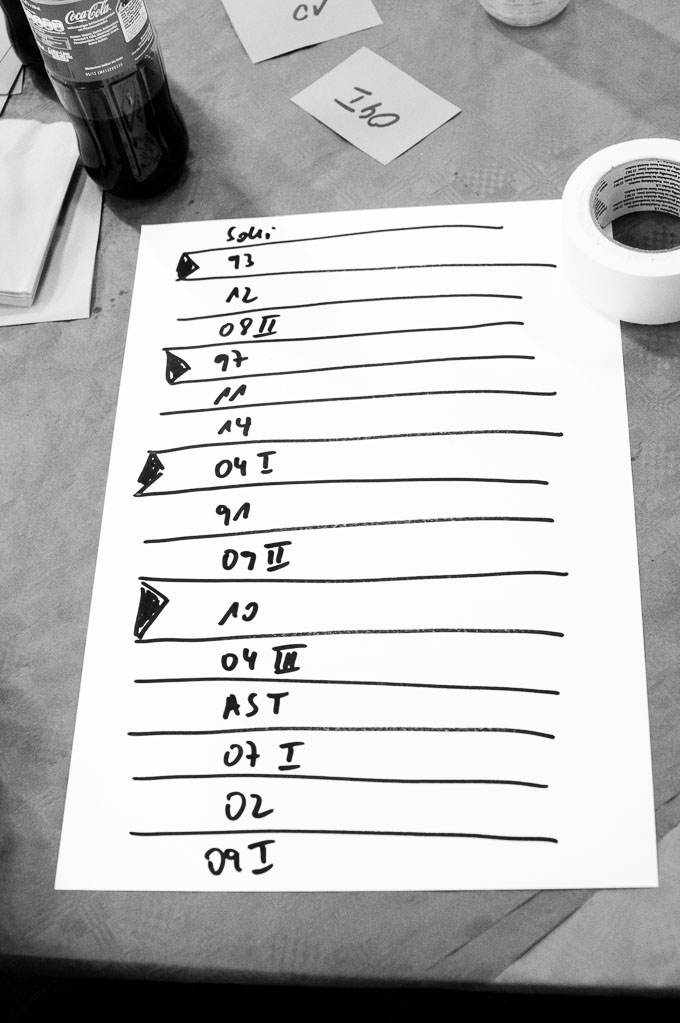 Coca-Cola
CV
09I
Soli
93
12
08 II
97
11
14
04 I
91
09 II
10
04 III
AST
07 I
02
09 I